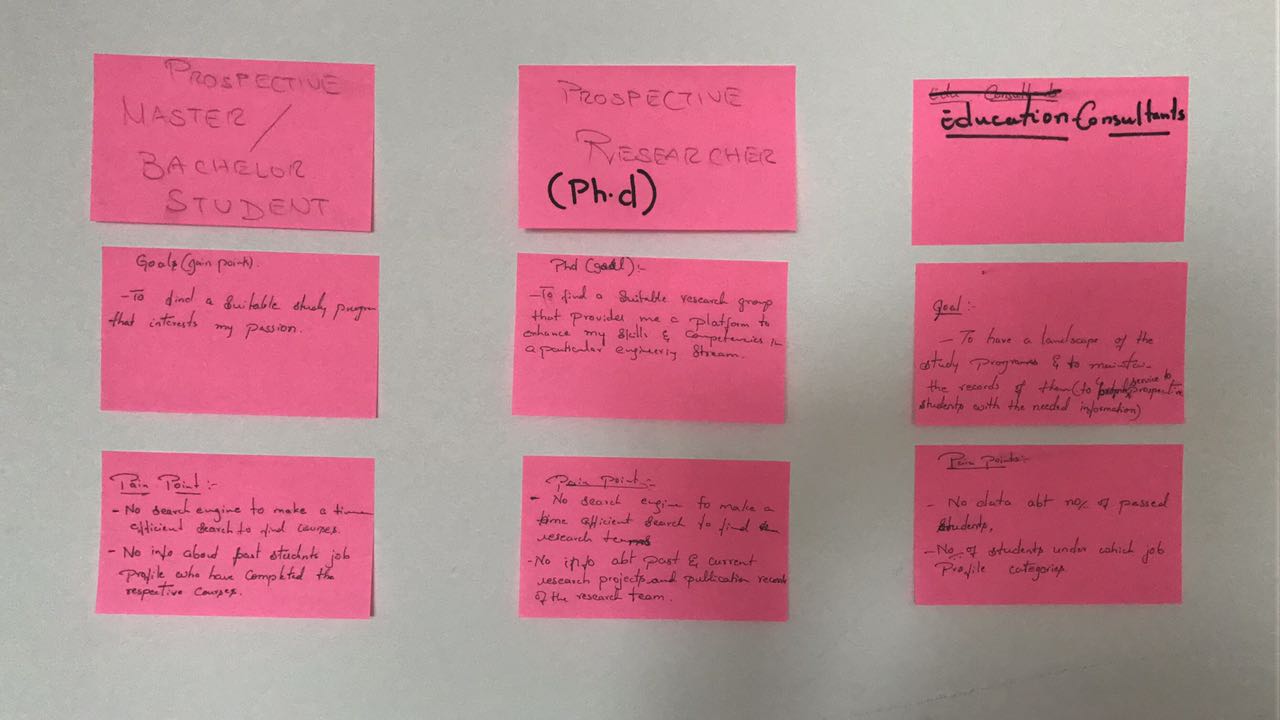 PROSPECTIVE
MASTER /
BACHELOR
STUDENT
Goals (gain point).
- To find a suitable study program
that interests my passion.
Pain Point :-
- No search engine to make a time
efficient search to find courses.
- No info about past students job
Profile who have completed the
respective courses.
PROSPECTIVE
RESEARCHER
(Ph.d)
Phd (goal) :-
- To find a suitable research group
that provides me a platform to
enhance my skills & Competencies in
a particular engineering Stream.
Pain point :-
- No search engine to make a
time efficient search to find
research teams
- No info abt past & current
research projects and publication records
of the research team.
Edu Consultants
Education Consultants
Goal :-
- To have a landscape of the
study programs & to maintain
the records of them (to service to prospective
students with the needed information)
Pain points :-
- No data abt no/. of passed
students,
- No. of students under which job
Profile categories.